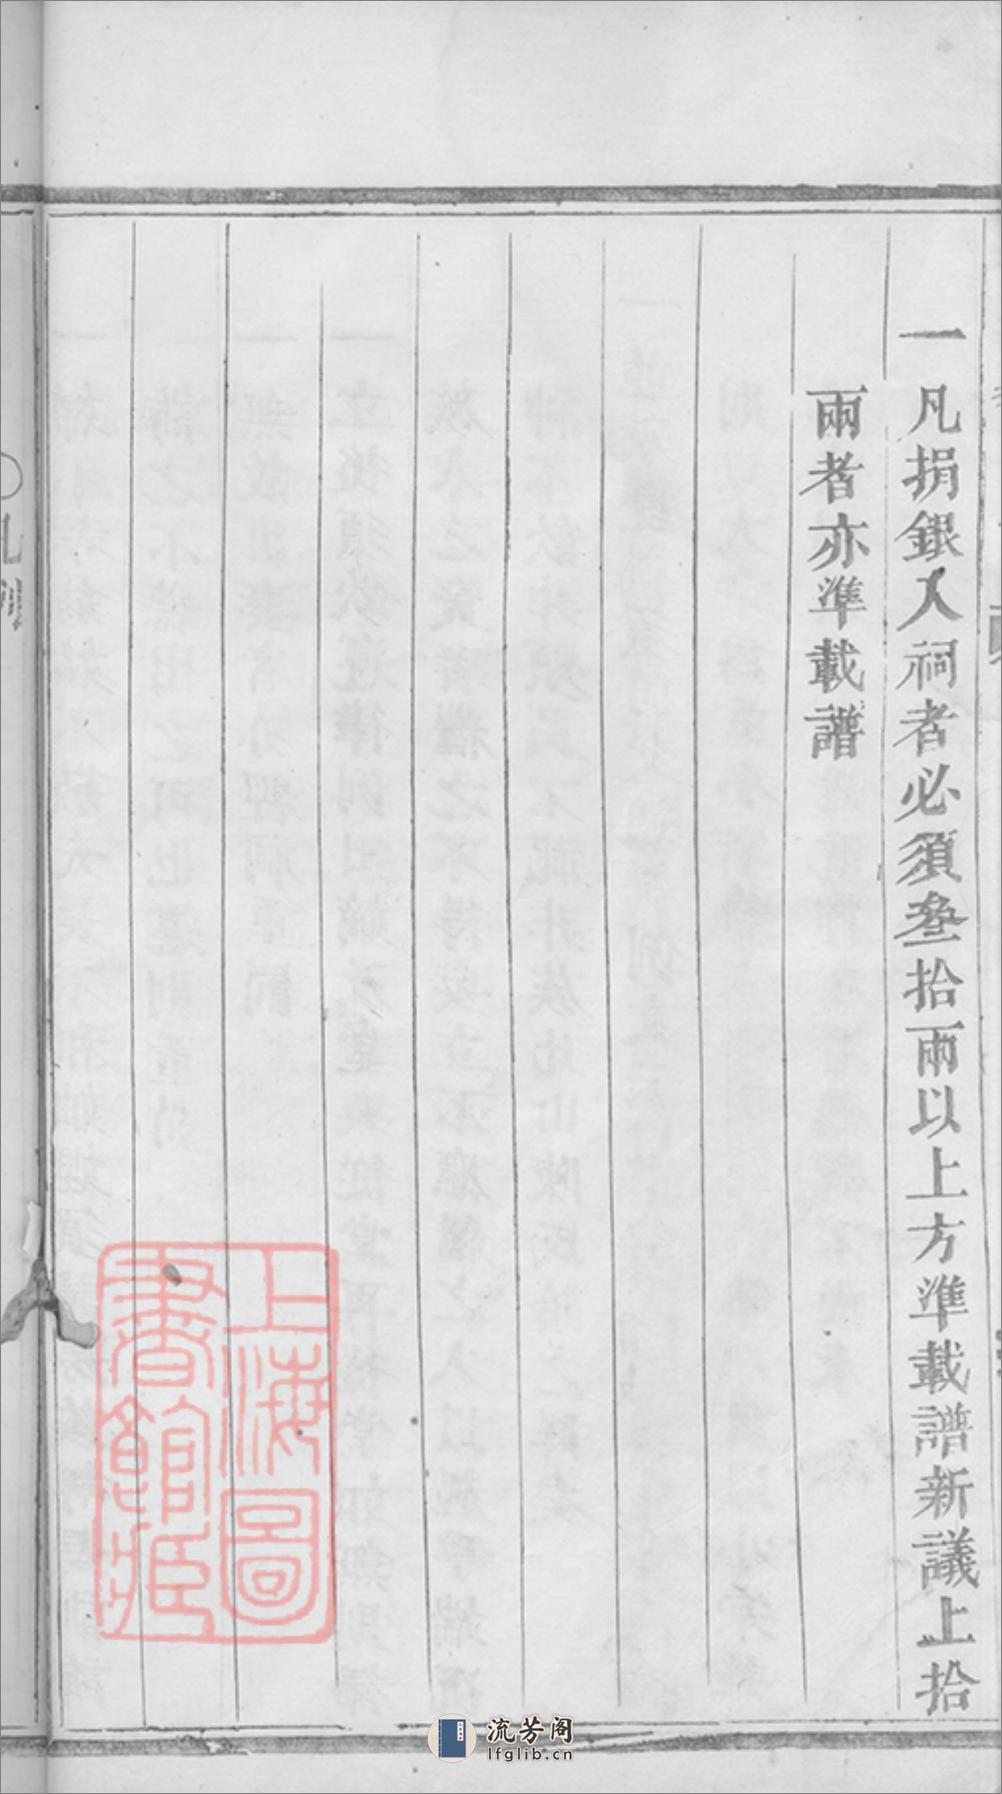 一凡捐銀入祠者必須叄拾兩以上方準載譜新議上拾
兩者亦準載譜
凡例
上海圖
書館藏
流芳阁
lfglib.cn